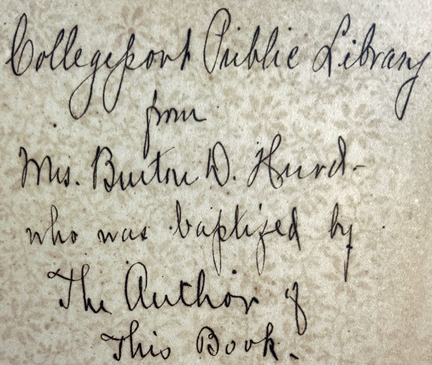 Collegeport Public Library
from
Mrs. Burton D. Hurd-
who was baptized by
The Author of
This Book.